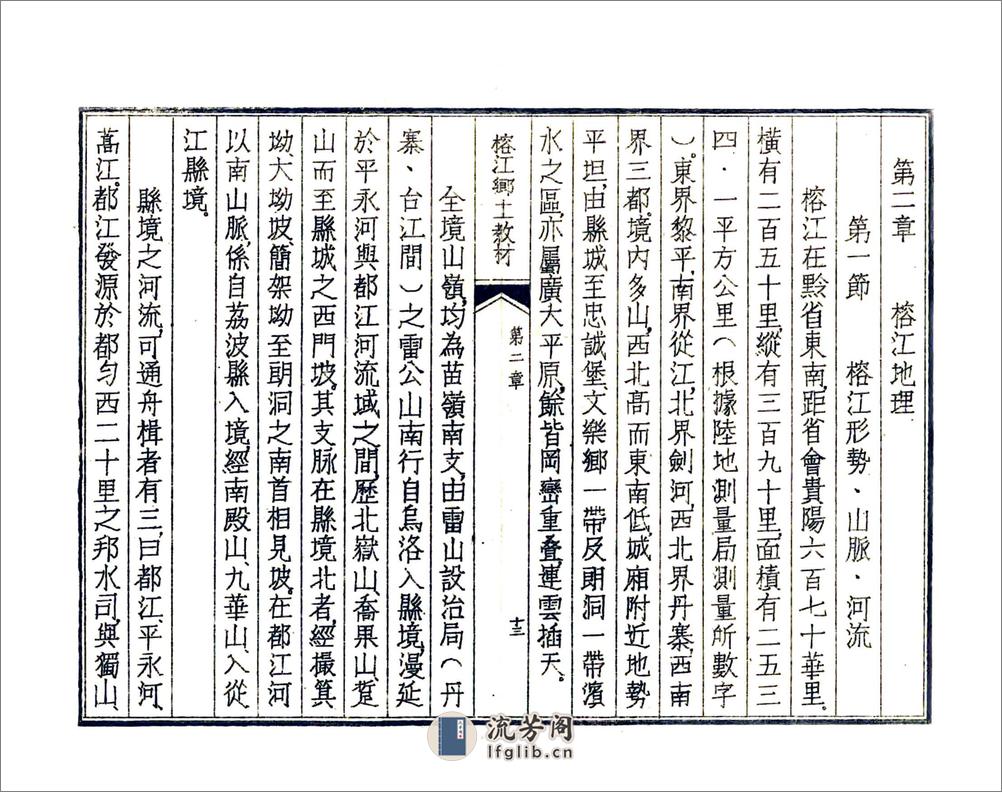 第二章　榕江地理
第一節　榕江形勢、山脈、河流
榕江在黔省東南，距省會貴陽六百七十華里。
橫有二百五十里，縱有三百九十里，面積有二五三
四．一平方公里（根據陸地測量局測量所數字
）。東界黎平，南界從江，北界劍河，西北界丹寨，西南
界三都。境內多山，西北高而東南低，城廂附近地勢
平坦，由縣城至忠誠堡、文樂鄉一帶及朗洞一帶濱
水之區，亦屬廣大平原，餘皆岡巒重叠，連雲插天。
榕江鄉土教材
第二章
十三
全境山嶺，均為苗嶺南支，由雷山設治局（丹
寨、台江間）之雷公山南行自烏洛入縣境，漫延
於平永河與都江河流域之間，歷北嶽山、喬果山、萛
山而至縣城之西門坡。其支脉在縣境北者，經撮箕
坳、大坳坡、簡架坳至朗洞之南首相見坡。在都江河
以南山脈，係自荔波縣入境，經南殿山、九華山、入從
江縣境。
縣境之河流，可通舟楫者有三，曰都江、平永河、
萵江。都江發源於都勻西二十里之邦水司，與獨山、
流芳阁
lfglib.cn